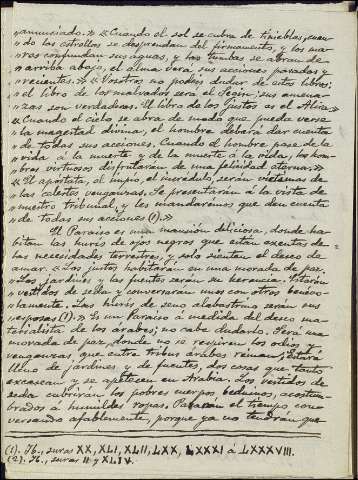 "anunciado." "Cuando el sol se cubra de tinieblas, cuan-
"do las estrellas se desprendan del firmamento, y los ma-
"res confundan sus aguas, y las tumbas se abran de
"arriba abajo, el alma verá sus acciones pasadas y
"recientes." "Vosotros no podéis dudar de estos libros;
"el libro de los malvados será el Segin; sus enseñan-
"zas son verdaderas. El libro de los justos es el Aliin."
"Cuando el cielo se abra de modo que pueda verse
"la magestad divina, el hombre deberá dar cuenta
"de todas sus acciones. Cuando el hombre pase de la
"vida á la muerte y de la muerte á la vida, los hom-
"bres virtuosos disfrutarán de una felicidad eterna."
"El apóstata, el impío, el incrédulo, serán víctimas de
"las celestes venganzas. Se presentarán á la vista de
"nuestro tribunal, y les mandaremos que den cuenta
"de todas sus acciones (1)."
El Paraíso es una mansión deliciosa, donde ha-
bitan las huris de ojos negros que están exentas de
las necesidades terrestres, y solo sienten el deseo de
amar. "Los justos habitarán en una morada de paz.
"Los jardines y las fuentes serán su herencia. Estarán
"vestidos de seda y conversarán unos con otros benévo-
"lamente. Las huris de seno alabastrino serán sus
"esposas (2)." Es un Paraíso á medida del deseo ma-
terialista de los árabes; no cabe dudarlo. Será una
morada de paz, donde no se respiren los odios y
venganzas, que entre tribus árabes reinan; Estará
lleno de jardines y de fuentes, dos cosas que tanto
escasean y se apetecen en Arabia. Los vestidos de
seda cubrirán los pobres cuerpos, beduinos, acostum-
brados á humildes ropas. Pasarán el tiempo con-
versando afablemente, porque ya no tendrán que
(1). Ib., suras XX, XLI, XLII, LXX, LXXXI á LXXXVIII.
(2). Ib., suras II y XLIV.